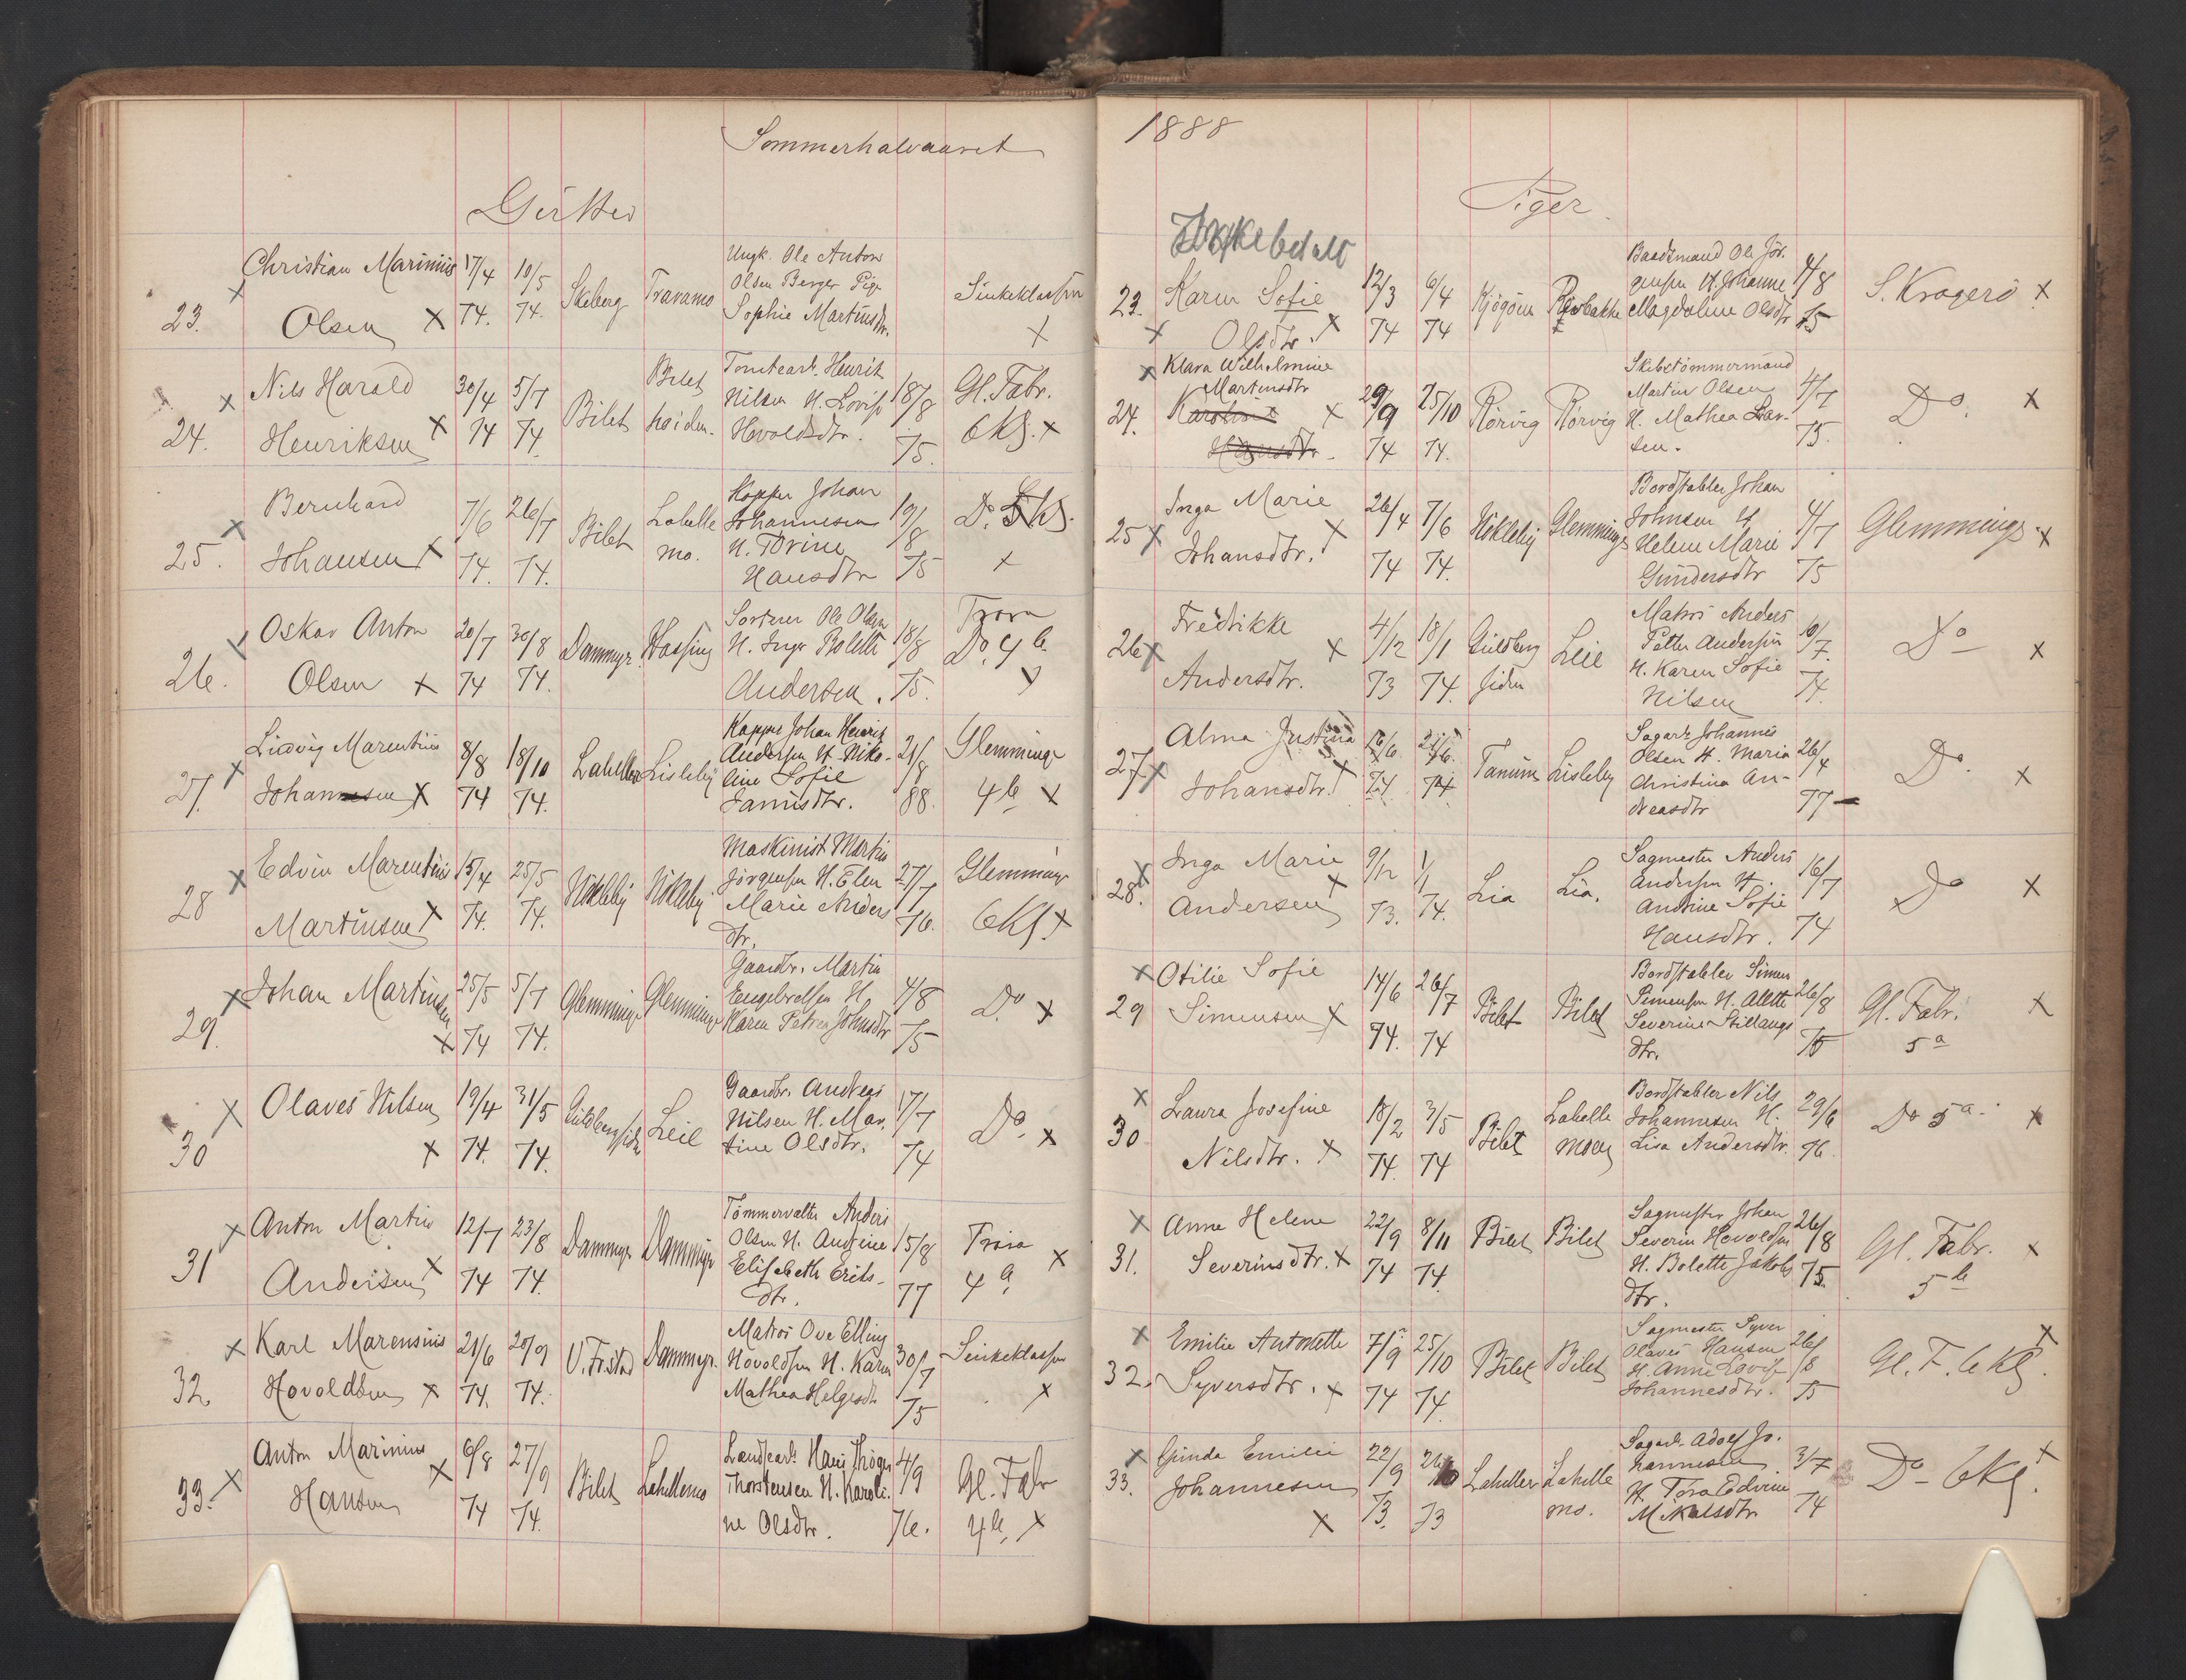 Sommerhalvaaret
Gutter
Christian Marinius 17/4 10/5 Ungk. Ole Anton
Olsen Berger Pige
23. Olsen x 74. 74. Skiberg Travamo Sophie Martinsdtr. Sinkeklassen x
Nils Harald 30/4 5/7 Bilet Tomtearb. Henrik 18/8 Gl. Fabr.
24. Henriksen x 74 74. Bilet heiden. Nilsen H. Lovise
Hovoldsdtr. 75. 6 Kl. x
Bernhard 7/6 26/7 Labelle Johan 19/8
25. Johansen x 74. 74. Bilet mo. Johannesen H. Torine
Hansdtr 75 Do. 5 Kl. x
Oskar Anton 20/7 30/8 Ole Olsen 18/8 Trara
26. Olsen x 74 74. Dammyr. H. Inger Bolette
Andersen. 75. Do. 4 b. x
Ludvig Marentius 8/8 18/10 Johan Henrik 21/8 Glemminge
27. Johannesen x 74 74. Lahellen Lisleby Andersen H. Niko-
line Sofie
88. 4 b x
Edvin Marentius 15/4 25/5 Maskinist Martin 27/7 Glemminge
28 Martinsen x 74. 74. Nökleby Nökleby Jörgensen H. Elen
Marie Anders
dtr. 76. 6 Kl. x
Johan Martinsen 25/5 5/7 Gaardbr. Martin 4/8
29. x 74 74. Glemminge Glemminge Engebretsen H.
Karen Petrea Johnsdtr 75 Do x
Olaves Nilsen 19/4 31/5 Gaardbr. Andreas 17/7
30 x 74. 74. Guldbergsiden Leie Nilsen H. Mar
tine Olsdtr. 74 Do. x
Anton Martin 12/7 23/8 Anders 15/8 Trara
31 Andersen x 74 74. Dammyr Dammyr Olsen H. Andrine
Elisabeth Eriks-
dtr. 77 4 a x
Karl Marensius 21/6 20/9 Matros Ove Elling 30/7 Sinkeklassen
32. Hovoldsen x 74. 74. V. Frstad Dammyr. Hovoldsen H. Karen
Mathea Helgesdtr 75 x
Anton Marinius 6/8 27/9 Hans 4/9 Gl. Fabr
33. Hansen x 74 74. Bilet Lahellemo Thorstensen H. Karoli-
ne Olsdtr. 76. 4 b. x
1888
Piger.
Ikke betalt
Karen Sofie 12/3 6/4 Baadsmand Ole Jör- 4/8
23. Olsdtr. x 74 74 Kjögöen Rævbakke gensen H. Johanne
Magdaline Olsdtr 75 S. Kragerö x
Klara Wilhelmine
Martinsdtr 29/9 25/10 Skibstömmermand 4/7
24. Karoline x Rörvig Rörvig Martin Olsen
74 74. H. Mathea Lar-
sen. 75. Do. x
Inga Marie 26/4 7/6 Bordstabler Johan 4/7
25 Johansdtr. x 74 74. Nökleby Glemminge Johnsen H.
Helene Marie
Gundersdtr 75 Glemminge x
Fredrikke 4/12 18/1 Matros Anders 10/7.
26 Andersdtr. x 73 74. Guldberg siden Leie Petter Andersen
H. Karen Sofie
Nilsen 74. Do x
Alma Justina 21/6. Sagarb. Johannes 26/4
27. Johansdtr. x 74 74 Tanum Lisleby Olsen H. Maria
Christina An-
dreasdtr 77 Do. x
Inga Marie 9/12 1/1 Sagmester Anders 16/7
28. Andersen x 73. 74. Lia Lia. Andersen H.
Andrine Sofie
Hansdtr. 74 Do x
Otilie Sofie 14/6 26/7 Bordstabler Simen 26/8 Gl. Fabr. x
29 Simensen x 74. 74 Bilet Bilet Simensen H. Alette
Severine Stillaugs
dtr. 75 5 a
Laura Josefine 18/2 3/5 Bordstabler Nils 29/6
30 Nilsdtr. x 74. 74 Bilet Labelle moen Johannesen H.
Lisa Andersdtr. 76. Do 5 a. x
Anne Helene 22/9 8/11 Sagmester Johan 26/8
31. Severinsdtr. x 74 74. Bilet Bilet Severin Hovoldsen
H. Bolette Jakobs
dtr. 75. Gl. Fabr. 5 b x
Emilie Antonette 7/9 25/10 Sagmester Syver 26/8
32. Syversdtr. x 74 74. Bilet Bilet Olaves Hansen
H. Anne Lovise
Johannesdtr. 75 Gl. F. 6 Kl. x
Gunda Emilie 22/9 Sagarb. Adolf Jo- 3/7
33. Johannesen x 73. 73 Lahellen Lahelle mo. hannesen
H. Tora Edvine
Mikalsdtr 74 Do - 6 Kl. x